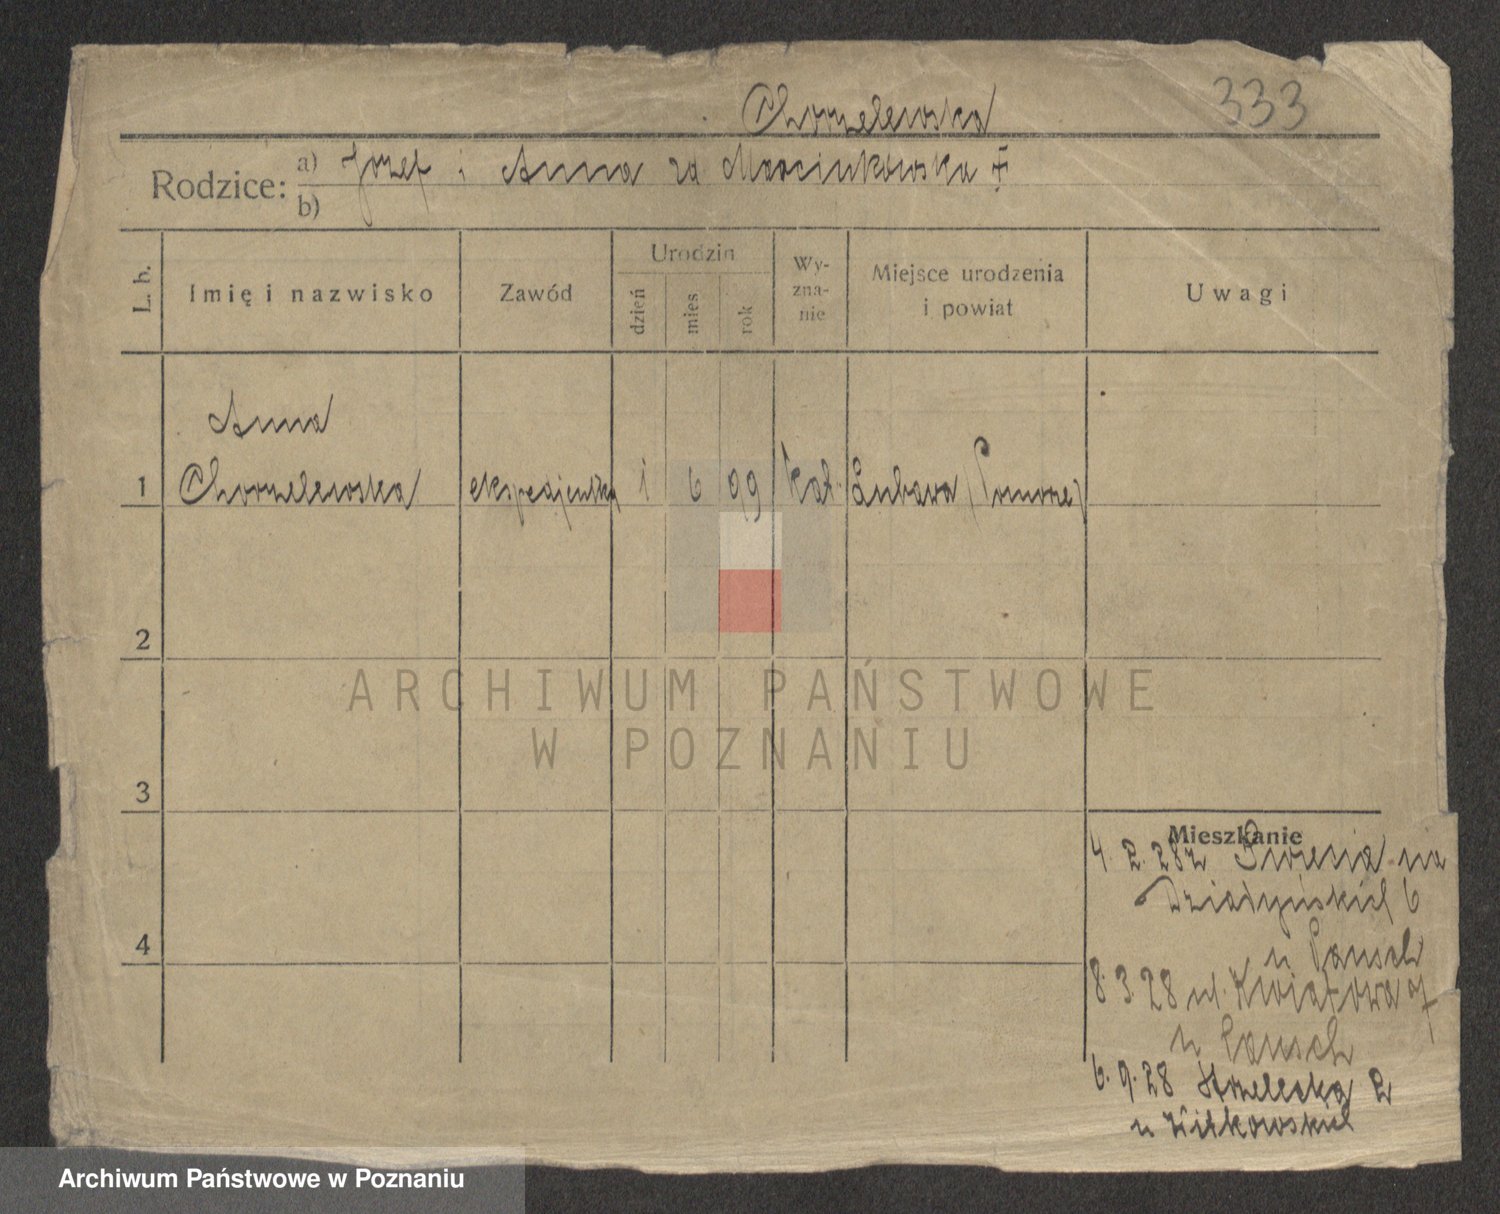 333
Chorzelewska
Rodzice: a) Józef i Anna zd Marcinkowska †
b)
L. b.
Imię i nazwisko
Zawód
Urodzin
dzień
mies
rok
Wy-
zna-
nie
Miejsce urodzenia
i powiat
Uwagi
Anna
1 Chorzelewska ekspedjentka 1 6 09 kat. Lubawa (Pomorze)
2
3
4
Mieszkanie
4. 2. 28 z na
Działyńskich 6
u Pausch
8. 3. 28 ul. Kwiatowa
u Pausch
6. 9. 28 Strzelecka 2
u Witkowskich
ARCHIWUM PAŃSTWOWE
W POZNANIU
Archiwum Państwowe w Poznaniu